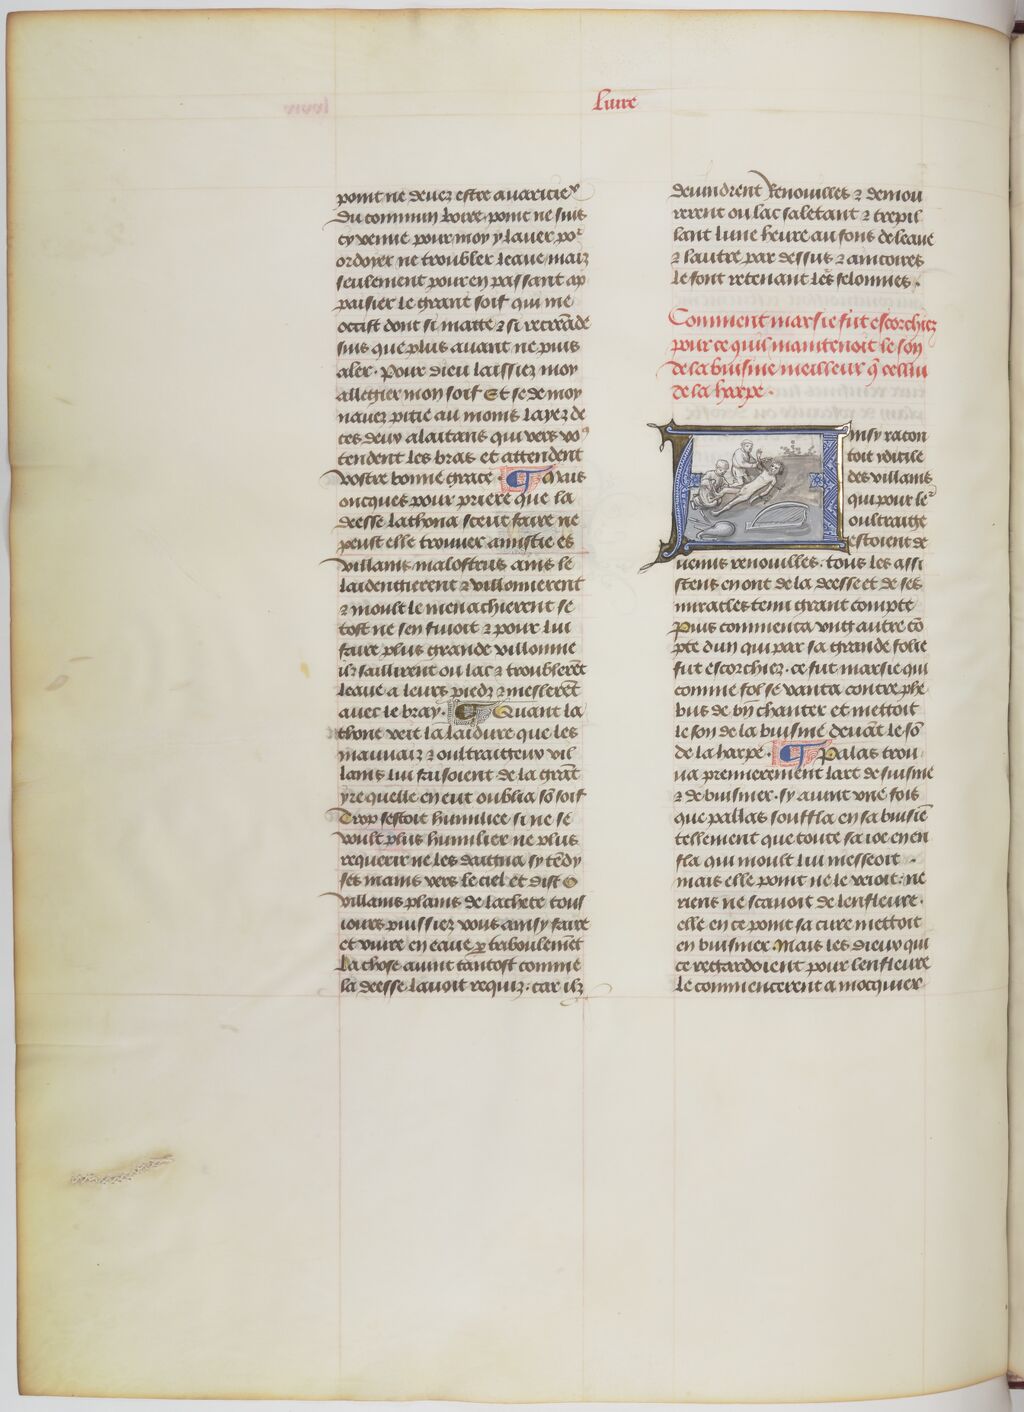 Livre
point ne devez estre avaricieux
Du commun boire. point ne suis
cy venue pour moy y laver por
ordoyer ne troubler leaue maiz
seulement pour en passant ap
paisier le grant soif qui me
occist dont si matte & si recreade
suis que plus avant ne puis
aler. Pour dieu laissiez moy
allegier mon soif Et se de moy
navez pitie au moins layez de
ces deux alaitans qui vers vo9
tendent les bras et attendent
vostre bonne grace. Mais
oncques pour priere que la
deesse lathona sceut faire ne
peust elle trouver amistie es
villains malostrus ains le
laidengierent & villonnierent
& moult le menachierent se
tost ne sen fuioit & pour lui
faire plus grande villonnie
ilz saillirent ou lac & troublerēt
leaue a leurs piedz & meslerēt
avec le bray. Quant la
thone veit la laidure que les
mauvaiz & oultraigeux vil
lains lui faisoient de la grāt
yre quelle en eut oublia sō soif
Trop sestoit humiliee si ne se
voult plus humilier ne plus
requerir ne les daigna sy tēdy
ses mains vers le ciel et dist O
villains plains de lachete tous
iours puissiez vous ainsy faire
et vivre en eaue p triboulemēt
La chose avint tantost comme
la deesse lavoit requiz. car ilz
devindrent Renouilles & demou
rerent ou lac saletant & trepil
lant lune heure au fons de leaue
& lautre par dessus & ancoires
le font retenant les felonnies.
Comment marsie fut escorchiez
pour ce quil maintenoit le son
de la buisine meilleur q̄ cellui
de la harpe.
Ainsy racon
toit
des villains
qui pour le2
oultraige
estoient de
venus renouilles. tous les assi
stens en ont de la deesse et de ses
miracles tenu grant compte
Puis commenca vng autre cō
pte dun qui par sa grande folie
fut escorchiez. ce fut marsie qui
comme fol se vanta contre phe
bus de bn chanter et mettoit
le son de la buisine devāt le sō
de la harpe. Palas trou
va premierement lart de buisine
& de buisiner. sy avint vne fois
que pallas souffla en sa buisine
tellement que toute sa ioe en en
fla qui moult lui messeoit.
mais elle point ne le veoit. ne
riens ne scavoit de lenfleure.
elle en ce point sa cure mettoit
en buisiner. Mais les dieux qui
ce regardoient pour lenfleure
le commencerent a mocquier